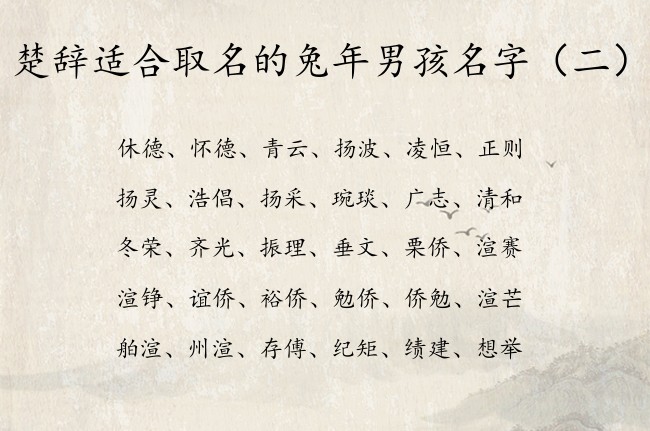 楚辞适合取名的兔年男孩名字（二）
休德、怀德、青云、扬波、凌恒、正则
扬灵、浩倡、扬采、琬琰、广志、清和
冬荣、齐光、振理、垂文、栗侨、渲赛
渲铮、谊侨、裕侨、勉侨、侨勉、渲芒
舶渲、州渲、存傅、纪矩、绩建、想举